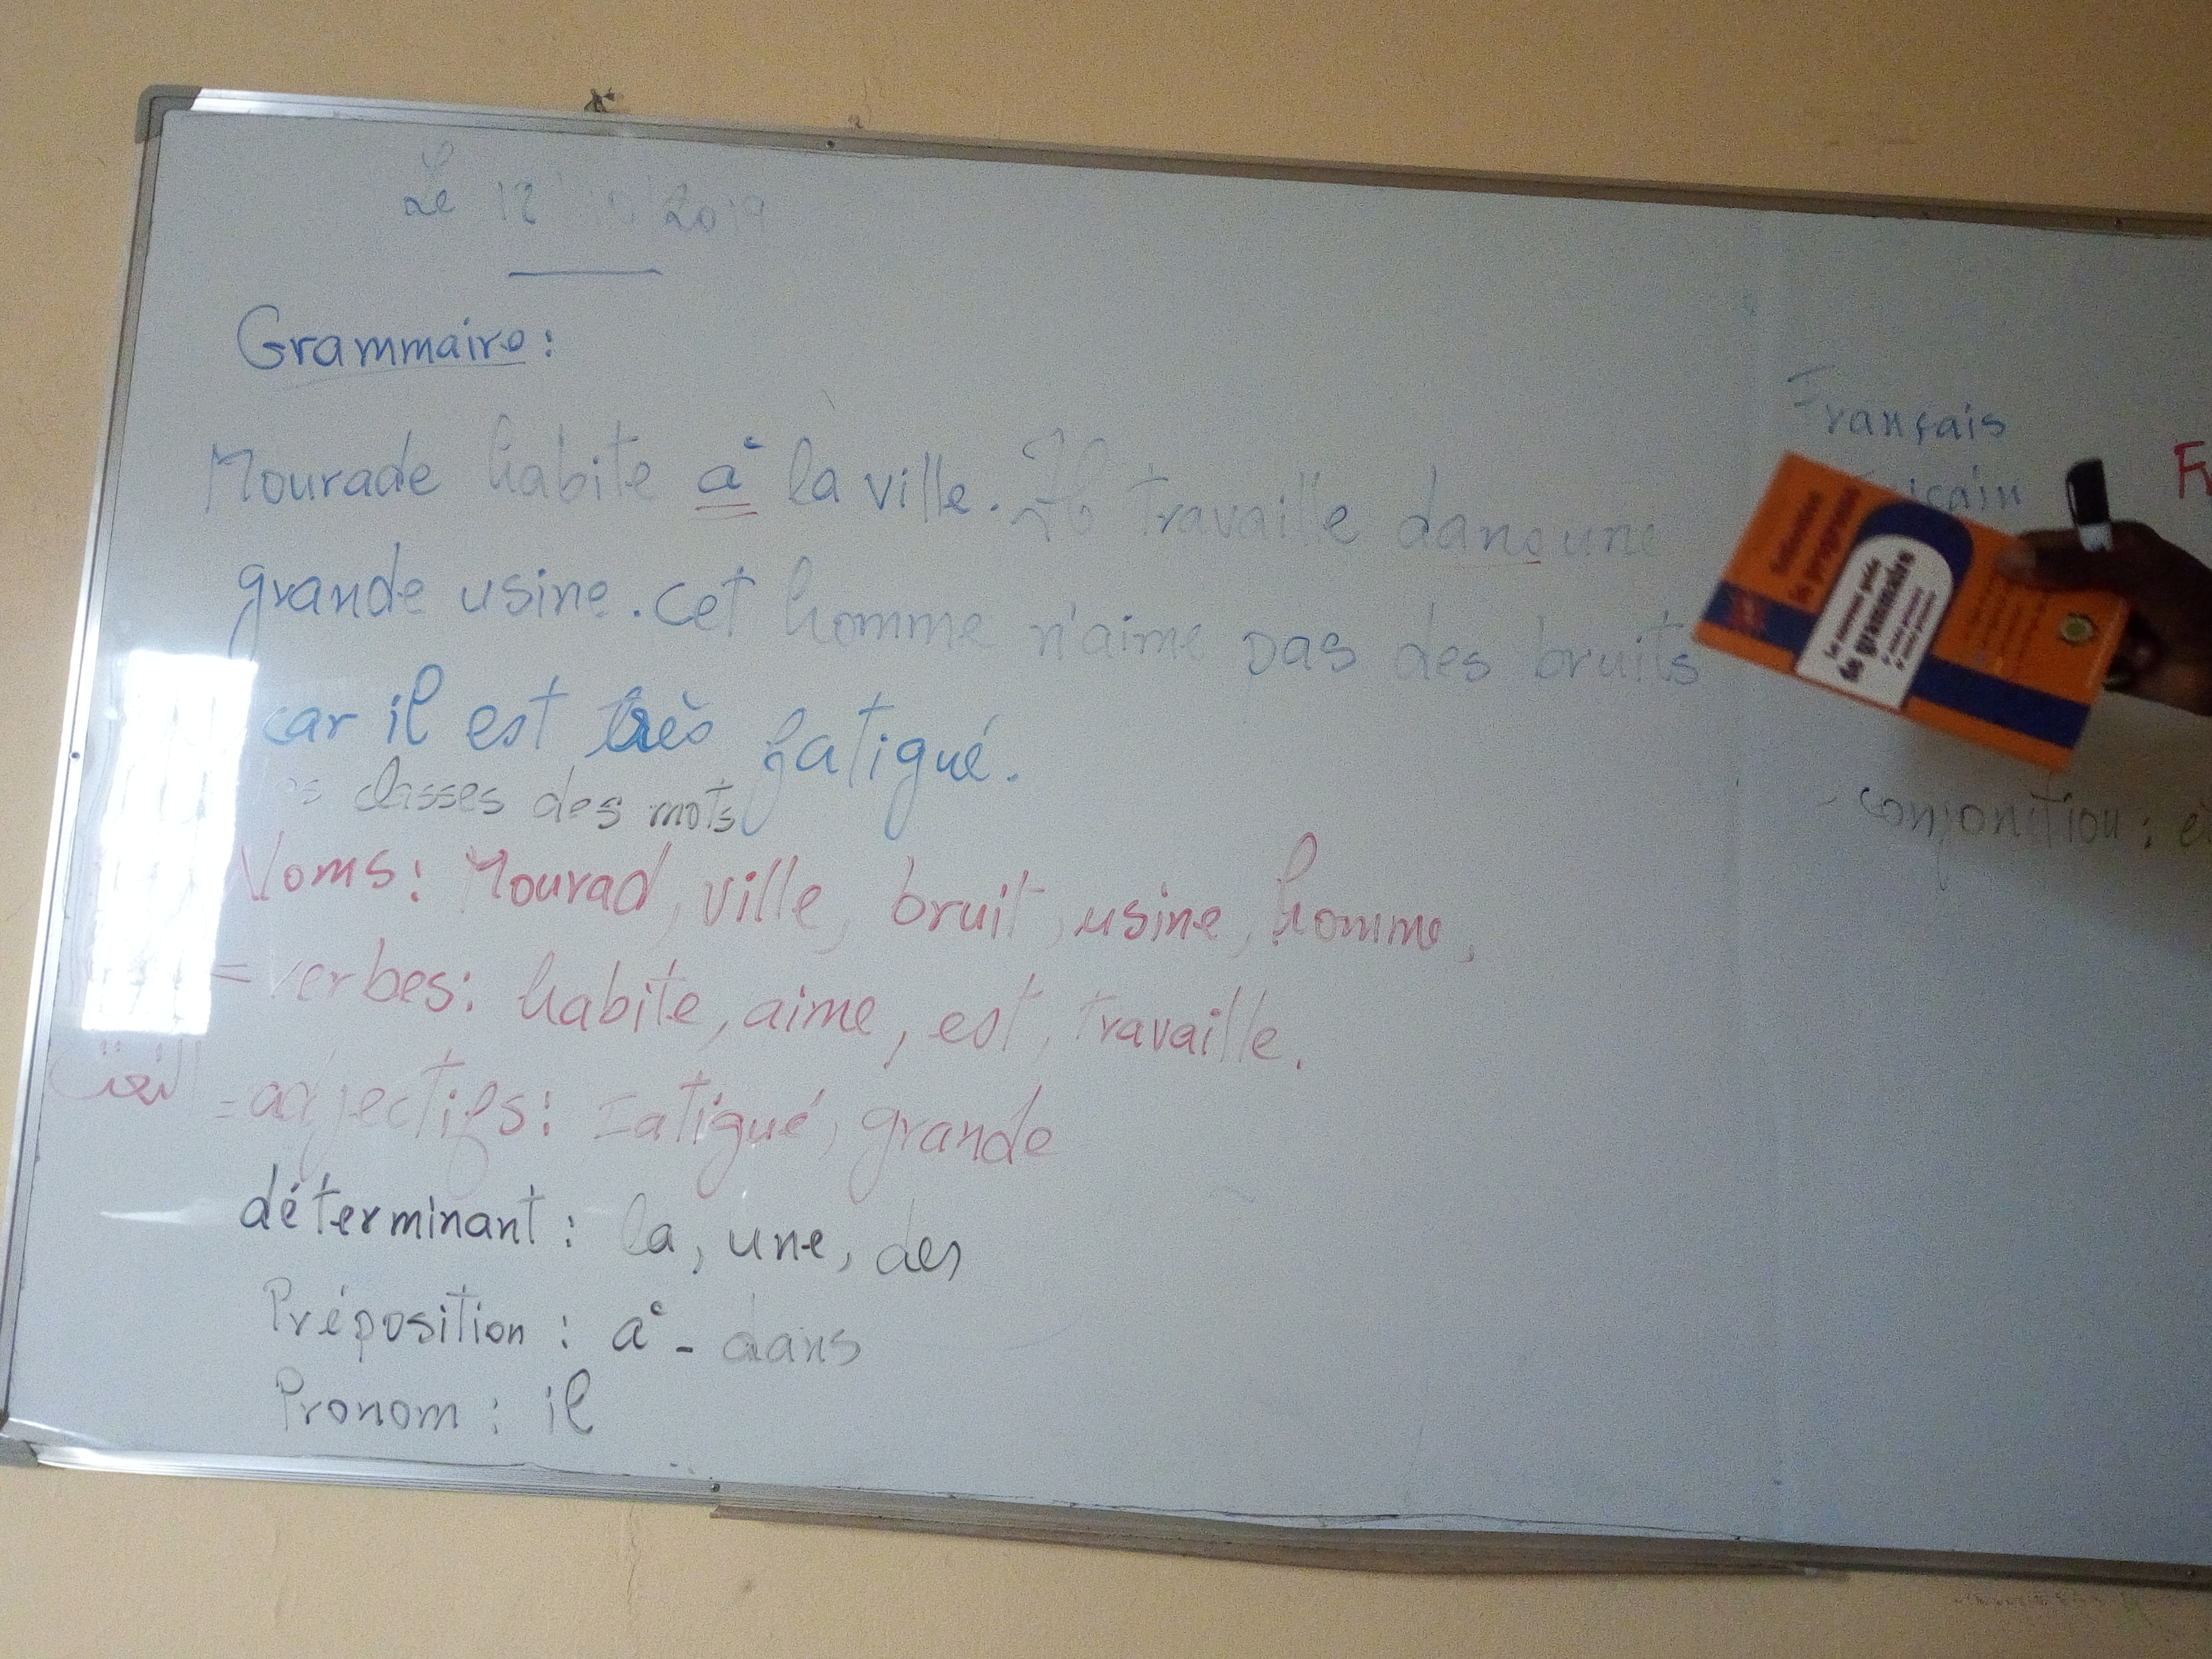 Le 12/10/2019
Grammaire:
Mourade habite à la ville. Il travaille dans une
grande usine. cet homme n'aime pas des bruits
car il est très fatigué.
classes des mots
Noms: Mourad, ville, bruit, usine, homme,
= verbes: habite, aime, est, travaille.
النعت = adjectifs: Fatigué, grande
déterminant: la, une, des
Préposition: à - dans
Pronom: il
Français
- conjonition:
de grammaire